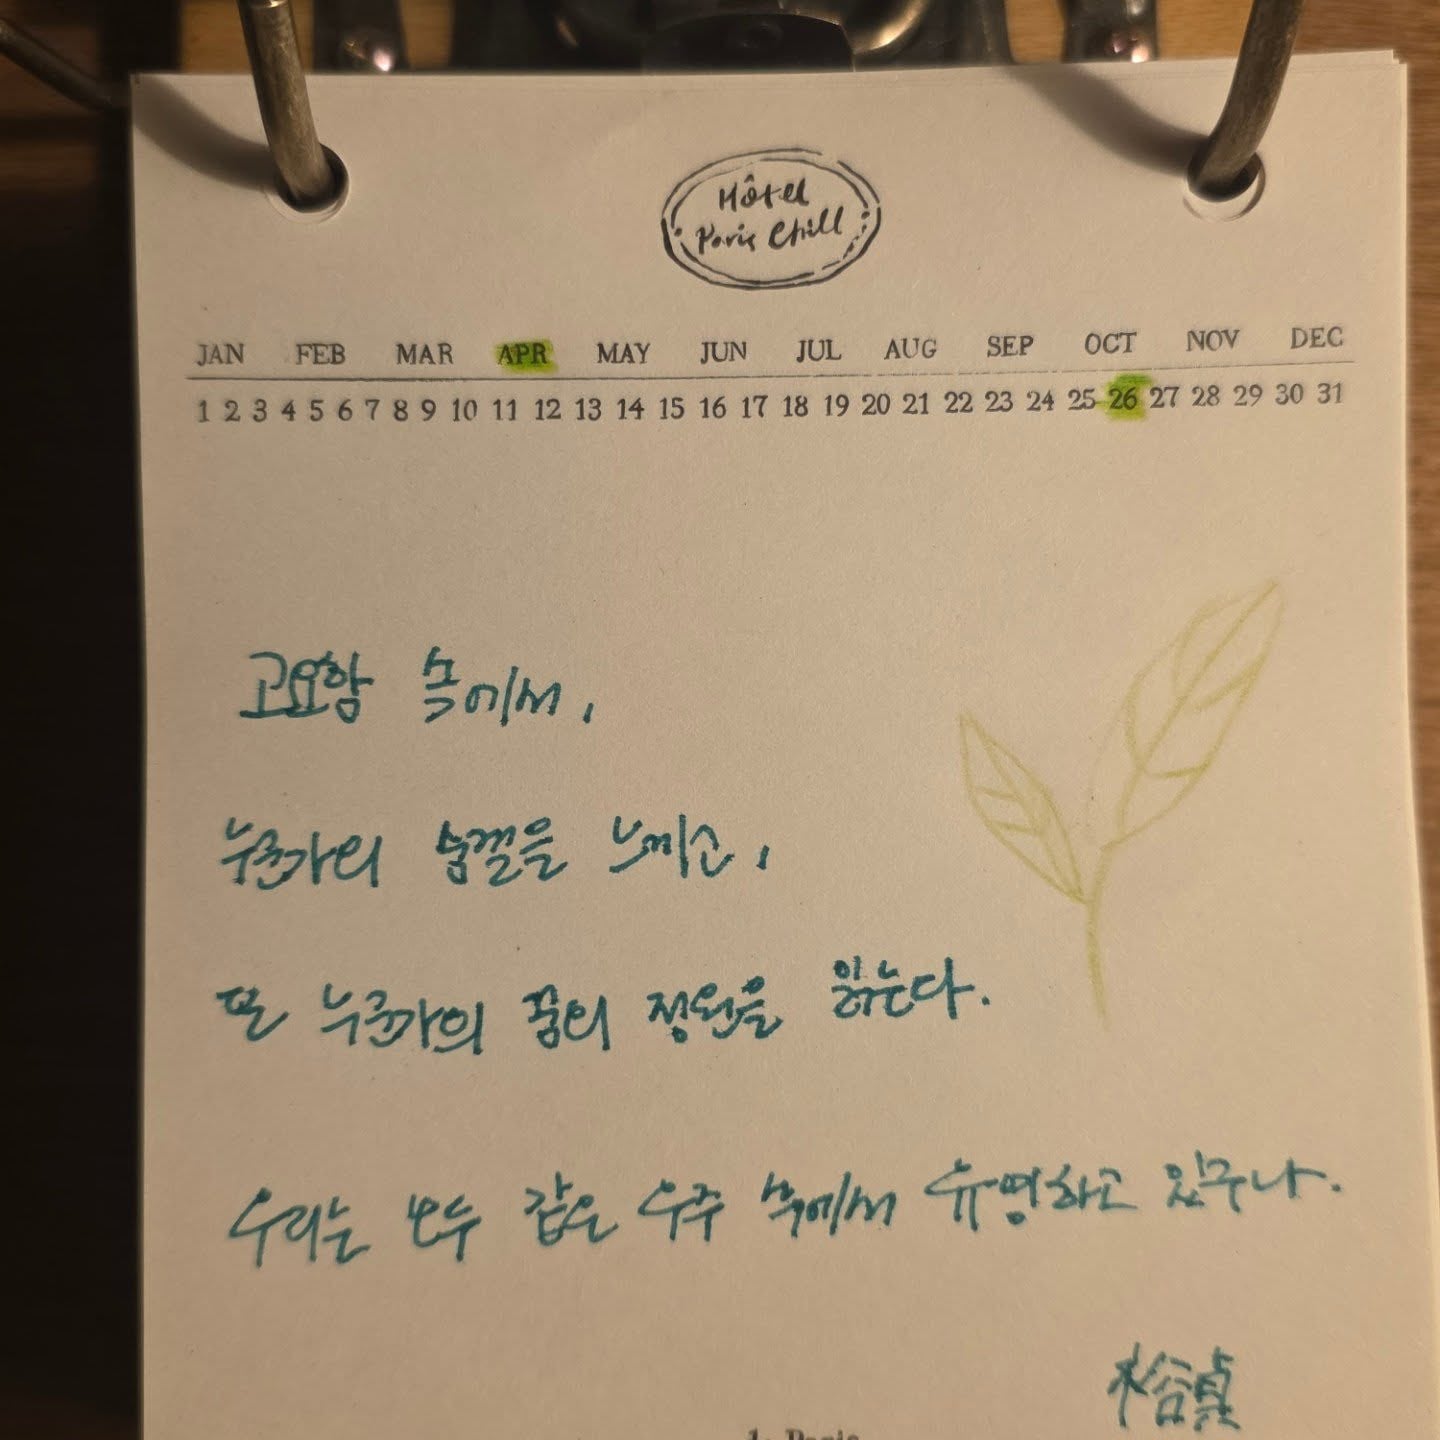 Hôtel
Paris Chill
JAN FEB MAR APR MAY JUN JUL AUG SEP OCT NOV DEC
1 2 3 4 5 6 7 8 9 10 11 12 13 14 15 16 17 18 19 20 21 22 23 24 25 26 27 28 29 30 31
고요함 속에서,
누군가의 숨결을 느끼고,
또 누군가의 꿈의 정원을 읽는다.
우리는 모두 같은 우주 속에서 유영하고 있구나.